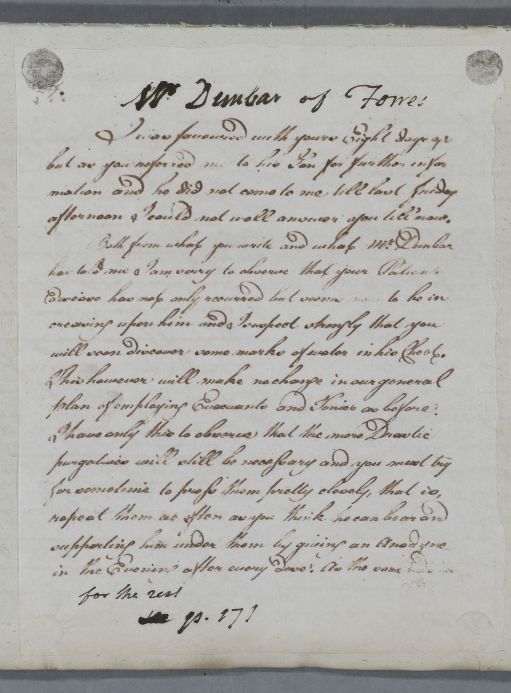 Mr Dunbar of Forres
Sir
I was favoured with yours Eight days ago
but as you referred me to his Son for further infor
mation and he did not come to me till last friday
afternoon I could not well answer you till now.
Both from what you write and what Mr. Dunbar
has told me I am sorry to observe that your Patients
Disease has not only recurred but seems to be in
creasing upon him and I suspect strongly that you
will soon discover some marks of water in his Chest.
This however will make no change in our general
plan of employing Evacuants and Tonics as before.
I have only this to observe that the more Drastic
purgatives will still be necessary and you must try
for sometime to press them pretty closely, that is,
repeat them as often as you think he can bear and
supporting him under them by giving an Anodyne
in the Evening after every dose. As the same
for the rest
p. 171